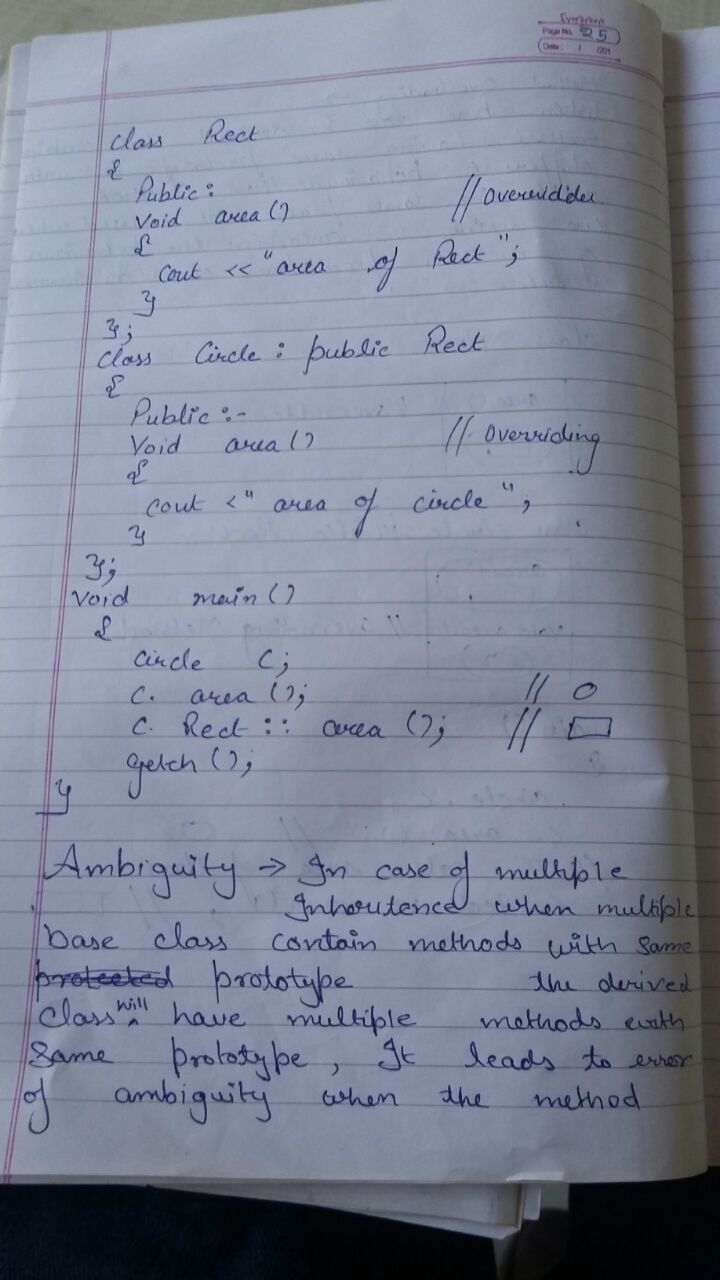 Evergreen
Page No. 25
Date: / /201
class Rect
{
Public:
void area()  // Overridden
{
cout << "area of Rect";
}
};
class Circle : public Rect
{
Public:-
Void area()  // Overriding
{
cout <" area of circle";
}
};
void main()
{
circle C;
C. area();  // ○
C. Rect :: area();  // ▭
getch();
}
Ambiguity → In case of multiple
Inheritence when multiple
base class contain methods with same
protected prototype the derived
class will have multiple methods with
same prototype, It leads to error
of ambiguity when the method